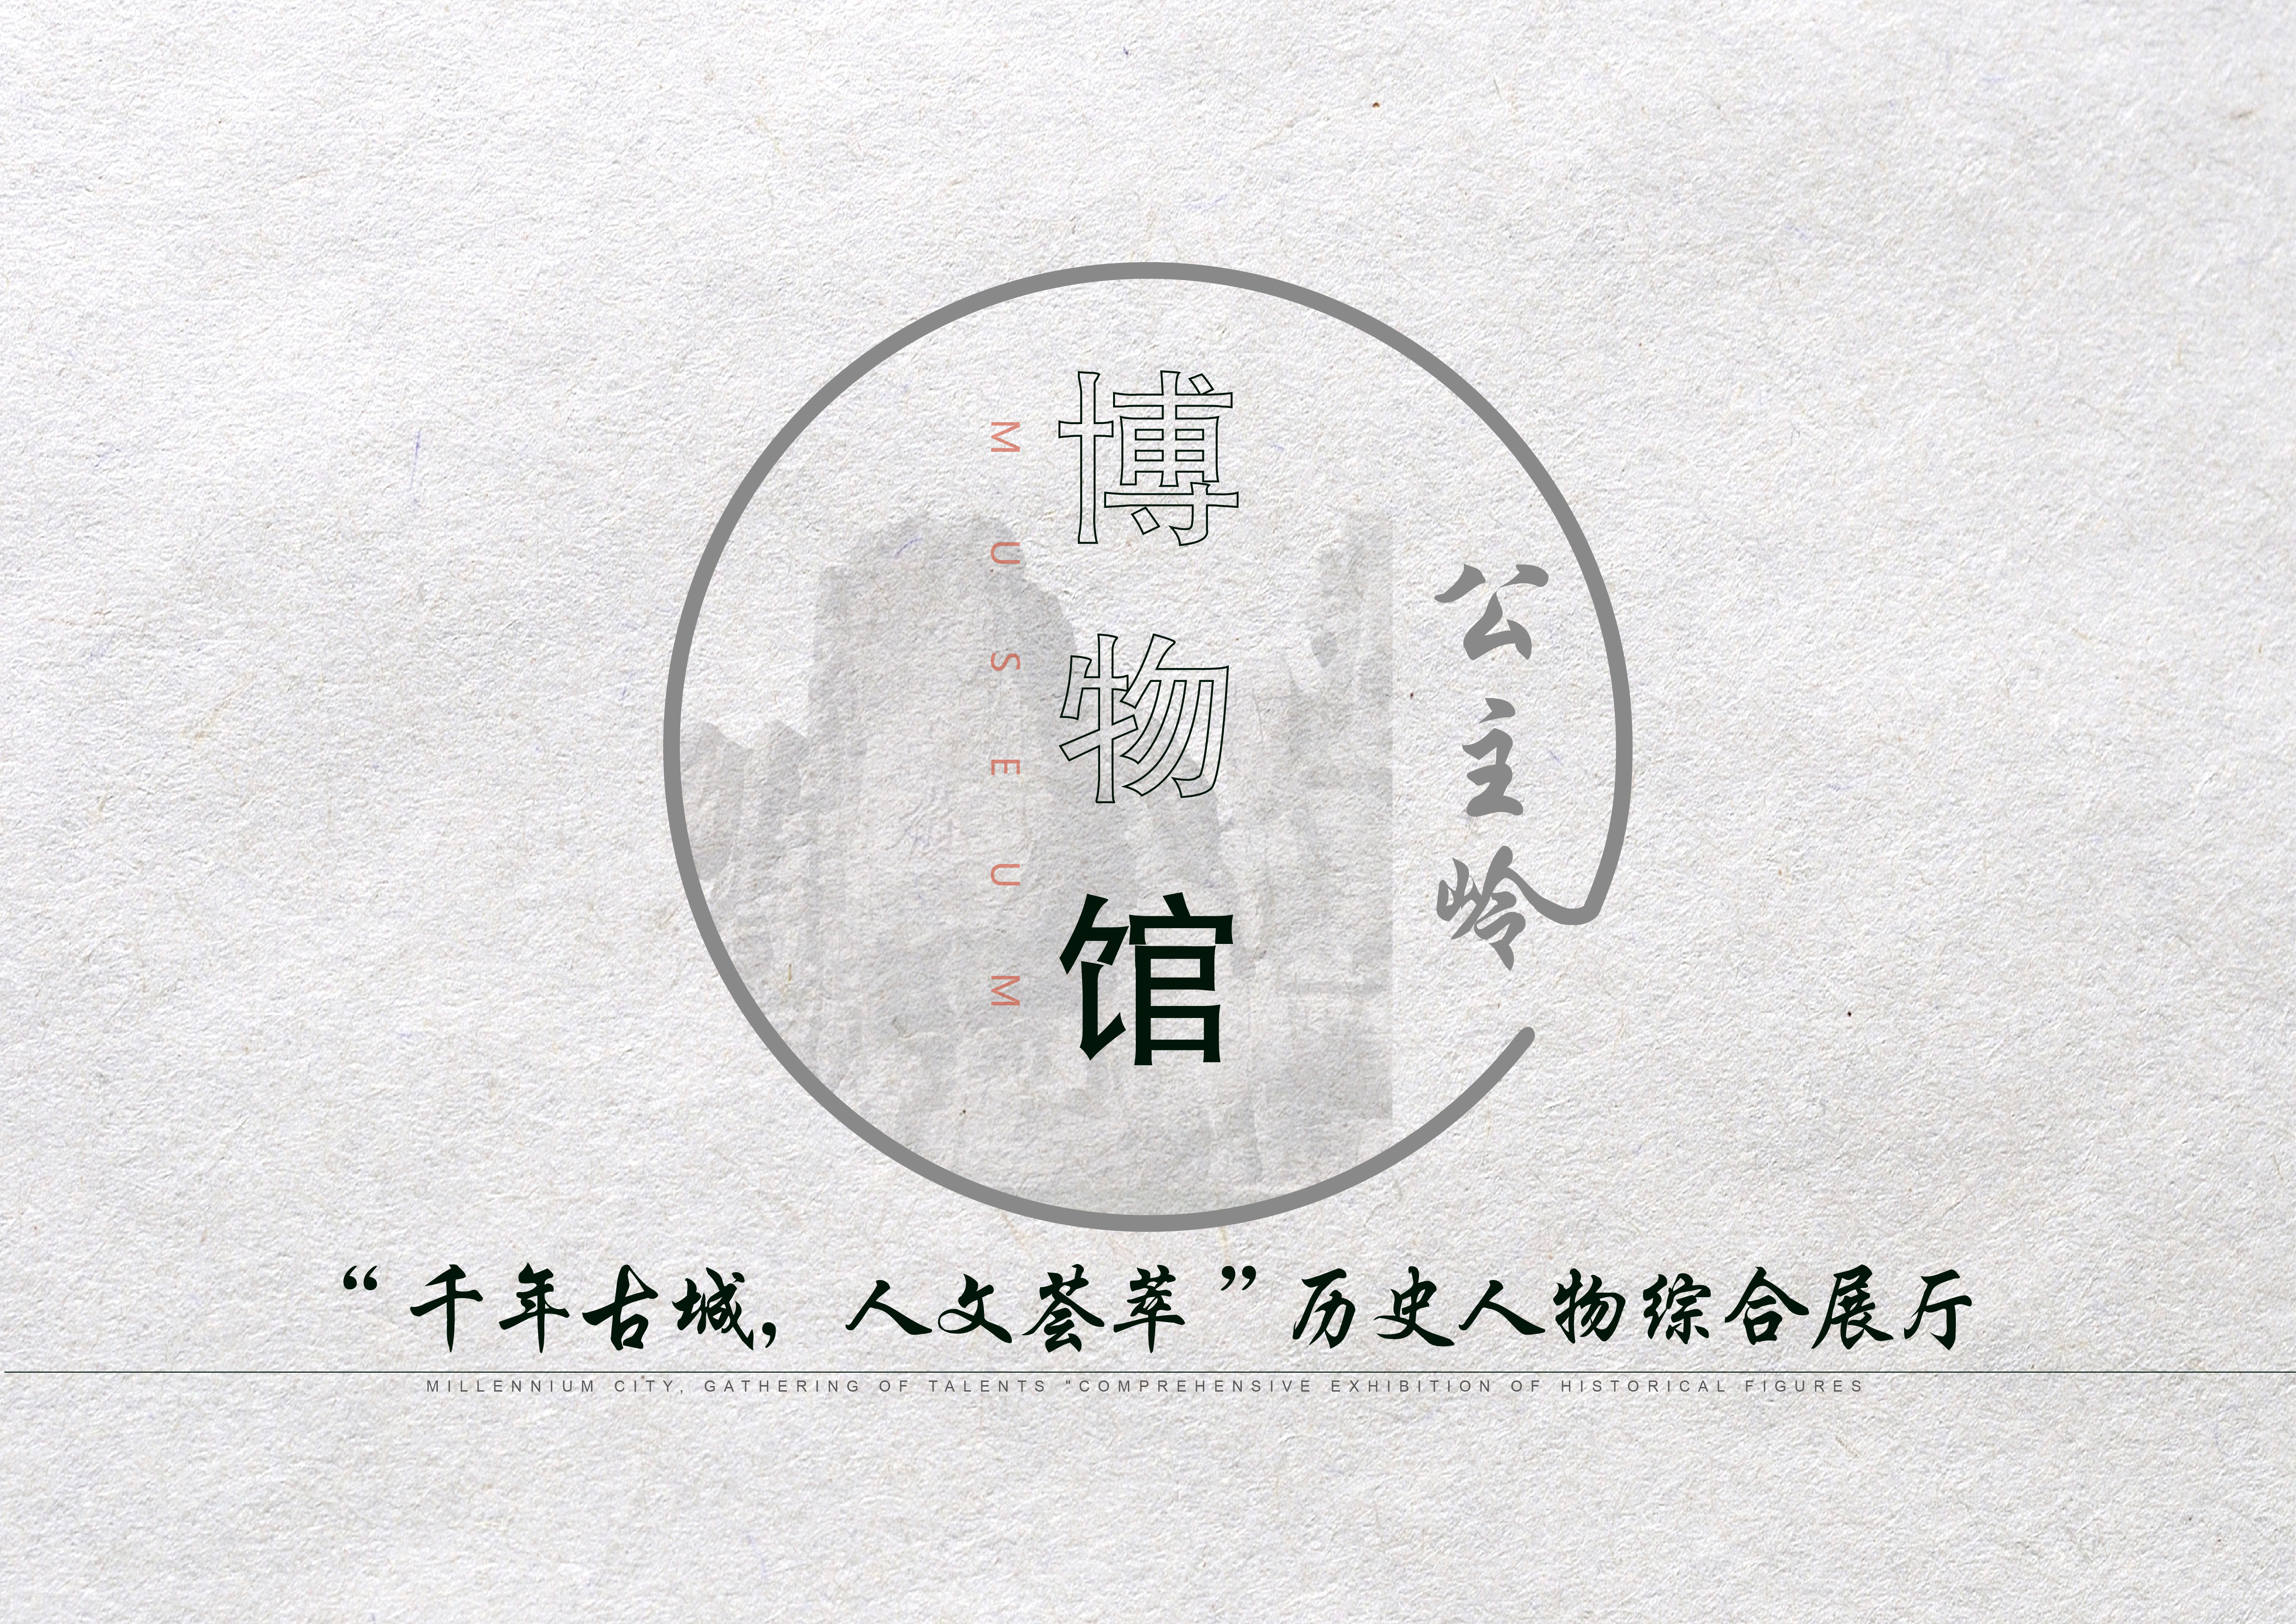 公主岭
博物馆
MUSEUM
“千年古城，人文荟萃”历史人物综合展厅
MILLENNIUM CITY, GATHERING OF TALENTS "COMPREHENSIVE EXHIBITION OF HISTORICAL FIGURES